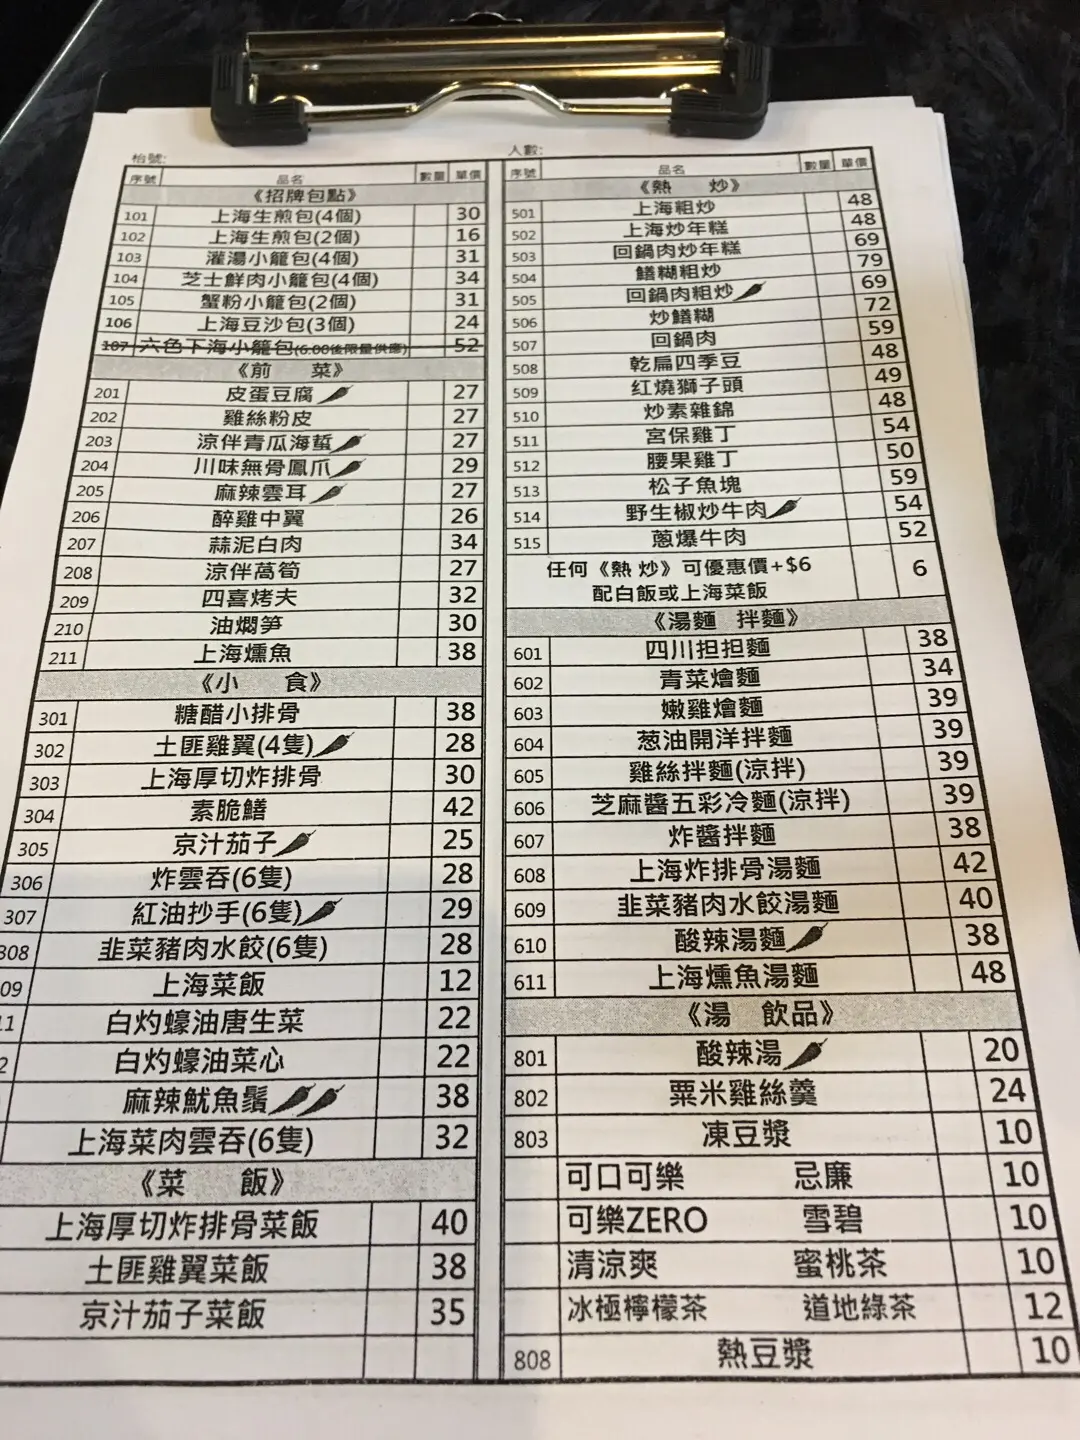 枱號:
序號 品名 數量 單價
《招牌包點》
101 上海生煎包(4個) 30
102 上海生煎包(2個) 16
103 灌湯小籠包(4個) 31
104 芝士鮮肉小籠包(4個) 34
105 蟹粉小籠包(2個) 31
106 上海豆沙包(3個) 24
107 六色下海小籠包(6:00後限量供應) 52
《前 菜》
201 皮蛋豆腐 27
202 雞絲粉皮 27
203 涼伴青瓜海蜇 27
204 川味無骨鳳爪 29
205 麻辣雲耳 27
206 醉雞中翼 26
207 蒜泥白肉 34
208 涼伴萵筍 27
209 四喜烤夫 32
210 油燜笋 30
211 上海燻魚 38
《小 食》
301 糖醋小排骨 38
302 土匪雞翼(4隻) 28
303 上海厚切炸排骨 30
304 素脆鱔 42
305 京汁茄子 25
306 炸雲吞(6隻) 28
307 紅油抄手(6隻) 29
308 韭菜豬肉水餃(6隻) 28
09 上海菜飯 12
11 白灼蠔油唐生菜 22
2 白灼蠔油菜心 22
麻辣魷魚鬚 38
上海菜肉雲吞(6隻) 32
《菜 飯》
上海厚切炸排骨菜飯 40
土匪雞翼菜飯 38
京汁茄子菜飯 35
人數:
序號 品名 數量 單價
《熱 炒》
501 上海粗炒 48
502 上海炒年糕 48
503 回鍋肉炒年糕 69
504 鱔糊粗炒 79
505 回鍋肉粗炒 69
506 炒鱔糊 72
507 回鍋肉 59
508 乾扁四季豆 48
509 紅燒獅子頭 49
510 炒素雜錦 48
511 宮保雞丁 54
512 腰果雞丁 50
513 松子魚塊 59
514 野生椒炒牛肉 54
515 蔥爆牛肉 52
任何《熱 炒》可優惠價+$6 6
配白飯或上海菜飯
《湯麵 拌麵》
601 四川担担麵 38
602 青菜燴麵 34
603 嫩雞燴麵 39
604 葱油開洋拌麵 39
605 雞絲拌麵(涼拌) 39
606 芝麻醬五彩冷麵(涼拌) 39
607 炸醬拌麵 38
608 上海炸排骨湯麵 42
609 韭菜豬肉水餃湯麵 40
610 酸辣湯麵 38
611 上海燻魚湯麵 48
《湯 飲品》
801 酸辣湯 20
802 粟米雞絲羹 24
803 凍豆漿 10
可口可樂 忌廉 10
可樂ZERO 雪碧 10
清涼爽 蜜桃茶 10
冰極檸檬茶 道地綠茶 12
808 熱豆漿 10